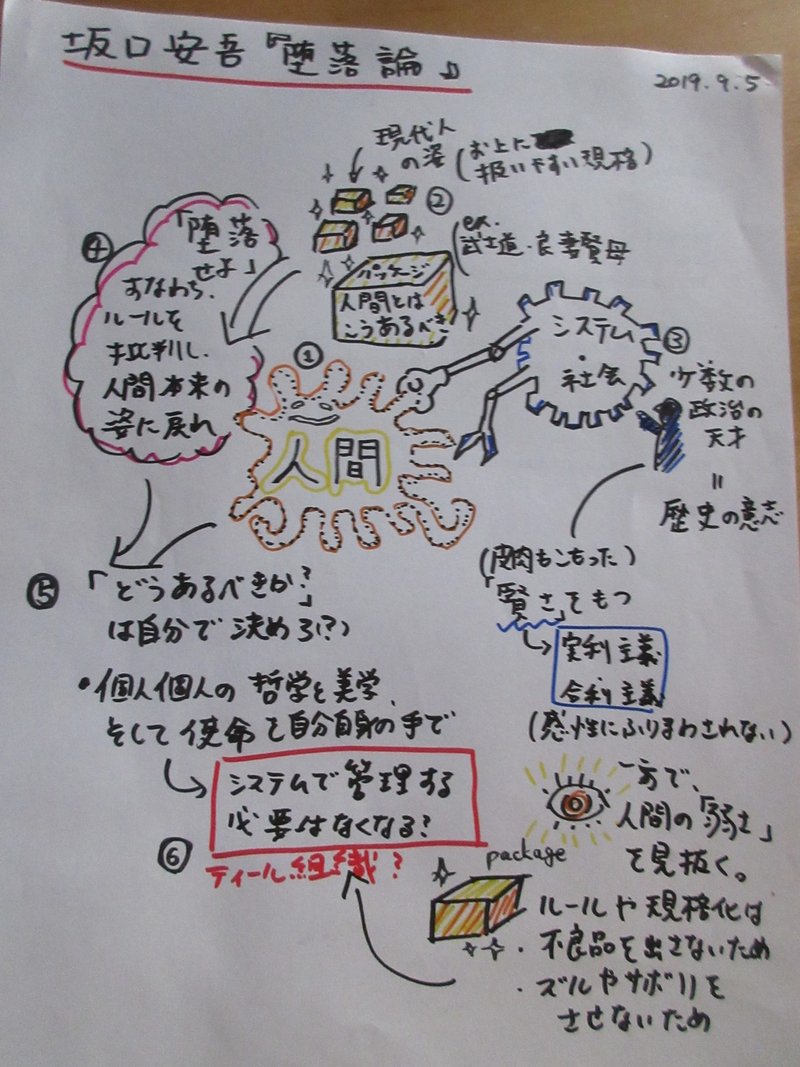 坂口安吾『堕落論』
2019.9.5
現代人
の姿
(お上に
扱いやすい規格)
②
ex.
武士道・良妻賢母
パッケージ
人間とは
こうあるべき
④
「堕落
せよ」
すなわち、
ルールを
批判し、
人間本来の
姿に戻れ
①
人間
システム
・
社会
③
少数の
政治の
天才
=
歴史の意志
(皮肉もこもった)
「賢さ」をもつ
実利主義
合利主義
(感性にふりまわされない)
⑤
「どうあるべきか?」
は自分で決めろ(?)
・個人個人の哲学と美学、
そして使命を自分自身の手で
システムで管理する
必要はなくなる?
⑥
ティール組織?
一方で、
人間の「弱さ」
を見抜く。
package
ルールや規格化は
・不良品を出さないため
・ズルやサボりを
させないため